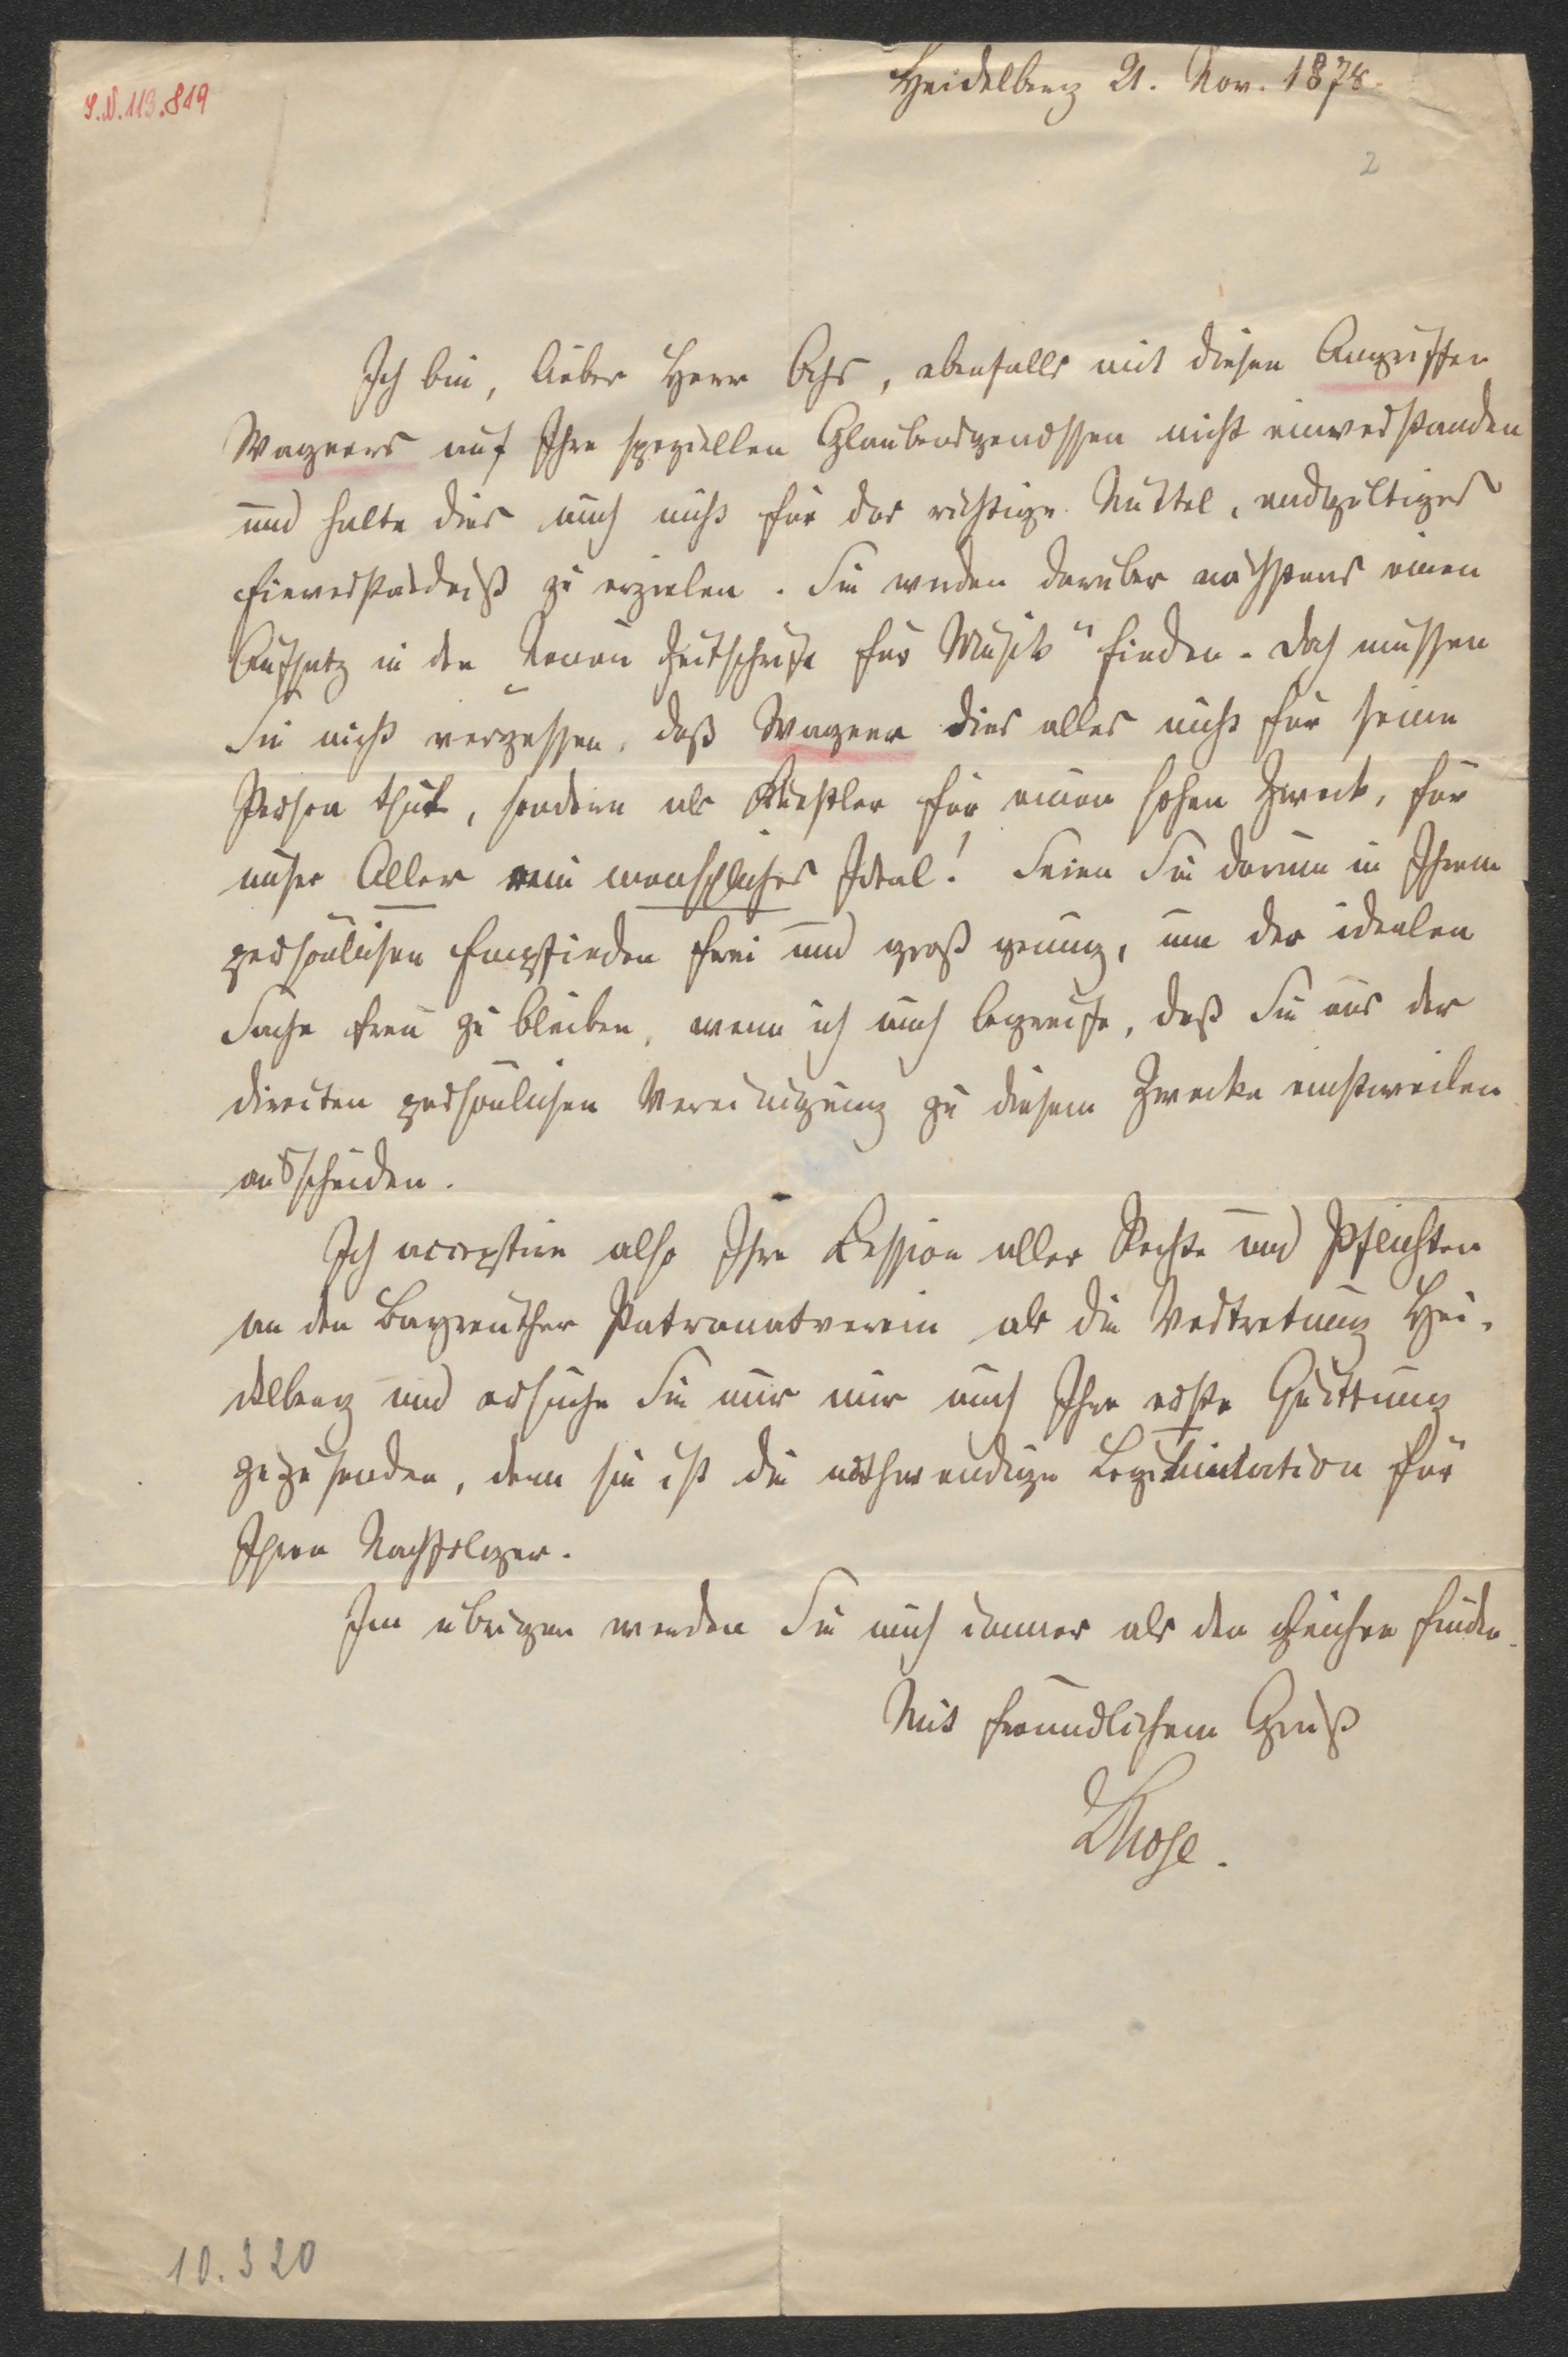 I.N. 113.819
Heidelberg 21. Nov. 1878.
2
Ich bin, lieber Herr Ochs, ebenfalls mit diesen Angriffen
Wagners auf Ihre speziellen Glaubensgenossen nicht einverstanden
und halte dies auch nicht für das richtige Mittel, endgültiges
Einverständniß zu erzielen. Sie werden darüber nächstens einen
Aufsatz in der „Neuen Zeitschrift für Musik“ finden. Doch müssen
Sie nicht vergessen, daß Wagner dies alles nicht für seine
Person thut, sondern als Künstler für einen hohen Zweck, für
unser Aller rein menschliches Ideal! Seien Sie darum in Ihrem
persönlichen Empfinden frei und groß genug, um der idealen
Sache treu zu bleiben, wenn ich auch begreife, daß Sie aus der
directen persönlichen Vereinigung zu diesem Zwecke einstweilen
ausscheiden.
Ich acceptire also Ihre Cession aller Rechte und Pflichten
an den Bayreuther Patronatverein als die Vertretung Hei-
delberg und ersuche Sie nur mir auch Ihre erste Quittung
zuzusenden, denn sie ist die nothwendige Legitimation für
Ihren Nachfolger.
Im übrigen werden Sie mich immer als den gleichen finden.
Mit freundlichem Gruß
LNohl.
10.320